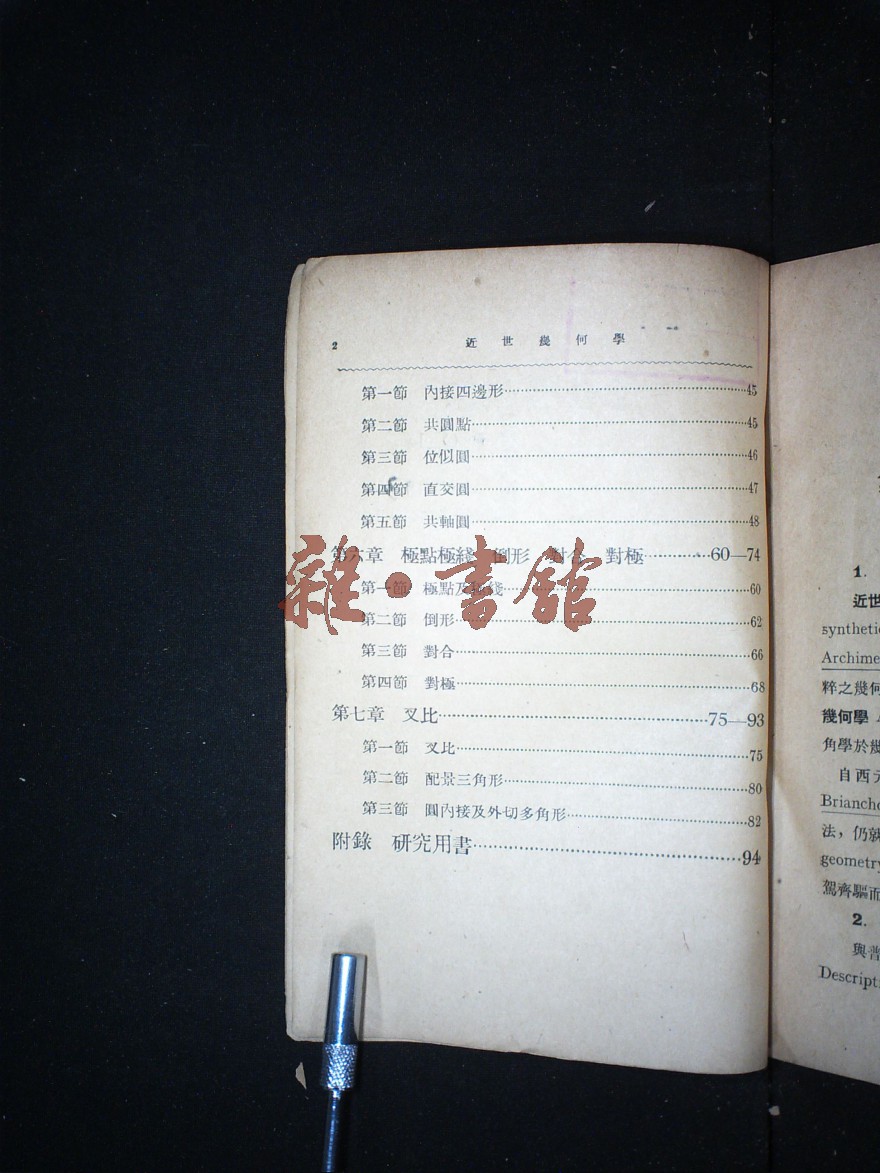 2 近世幾何學
第一節 內接四邊形 45
第二節 共圓點 45
第三節 位似圓 46
第四節 直交圓 47
第五節 共軸圓 48
第六章 極點極綫 倒形 對合 對極 60—74
第一節 極點及極綫 60
第二節 倒形 62
第三節 對合 66
第四節 對極 68
第七章 叉比 75—93
第一節 叉比 75
第二節 配景三角形 80
第三節 圓內接及外切多角形 82
附錄 研究用書 94
雜·書館
1.
近世
synthetic
Archime
粹之幾何
幾何學
角學於幾
自西元
Briancho
法，仍就
geometry
駕齊驅而
2.
與普
Descript